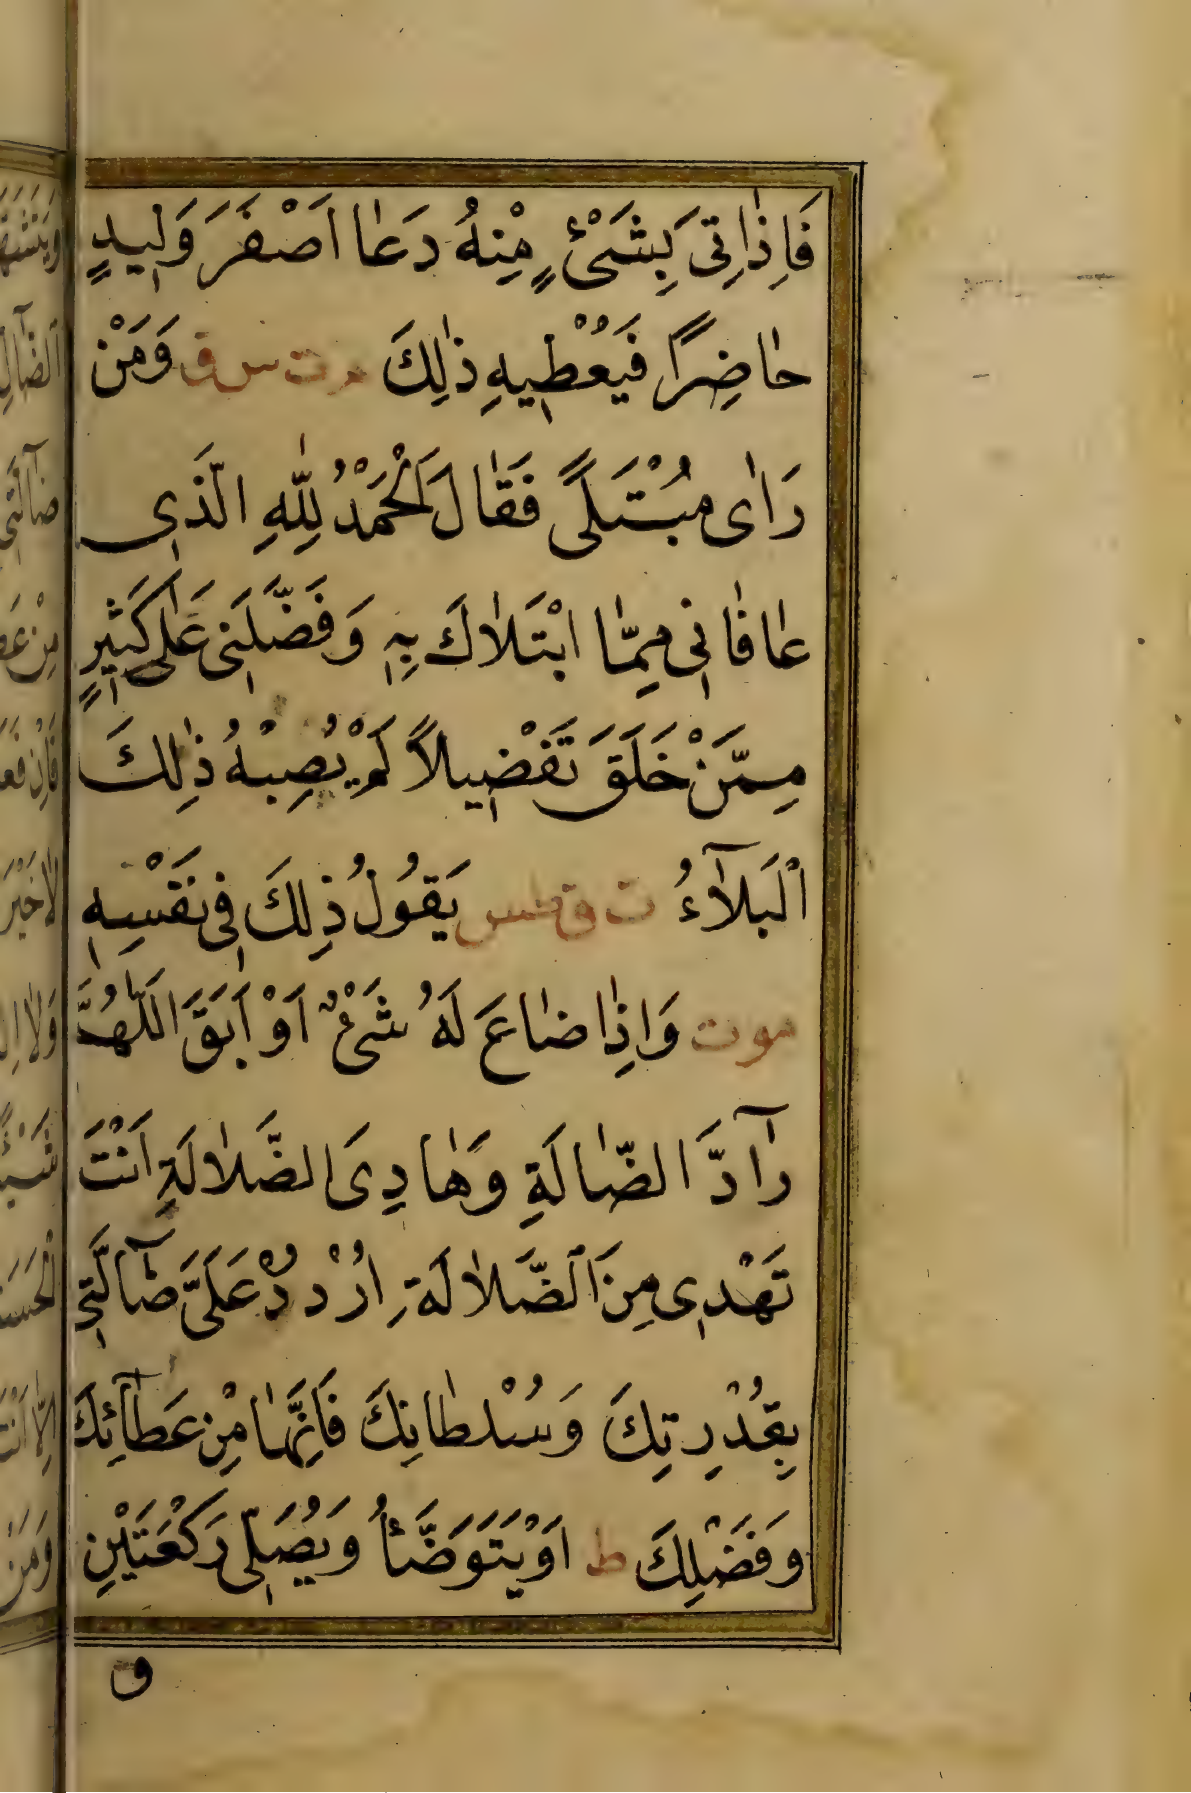 فَاِذٰا اُتِىَ بِشَىْءٍ مِنْهُ دَعٰا اَصْفَرَ وَلِيدٍ
حٰاضِرًا فَيُعْطِيهِ ذٰلِكَ م ت س ق وَمَنْ
رَاٰى مُبْتَلًى فَقٰالَ اَلْحَمْدُ لِلّٰهِ الَّذِى
عٰافٰانِى مِمَّا ابْتَلاٰكَ بِهِ وَفَضَّلَنِى عَلٰى كَثِيرٍ
مِمَّنْ خَلَقَ تَفْضِيلاً لَمْ يُصِبْهُ ذٰلِكَ
الْبَلآَءُ ت ق طس يَقُولُ ذٰلِكَ فِى نَفْسِهِ
موت وَاِذٰا ضٰاعَ لَهُ شَىْءٌ اَوْ اَبَقَ اَللّٰهُمَّ
رٰآدَّ الضّٰالَةِ وَهٰادِىَ الضَّلاٰلَةِ اَنْتَ
تَهْدِى مِنَ الضَّلاٰلَةِ اُرْدُدْ عَلَىَّ ضٰآلَّتِى
بِقُدْرِتِكَ وَسُلْطٰانِكَ فَاِنَّهٰا مِنْ عَطٰآئِكَ
وَفَضْلِكَ ط اَوْ يَتَوَضَّأُ وَيُصَلِّى رَكْعَتَيْنِ
و